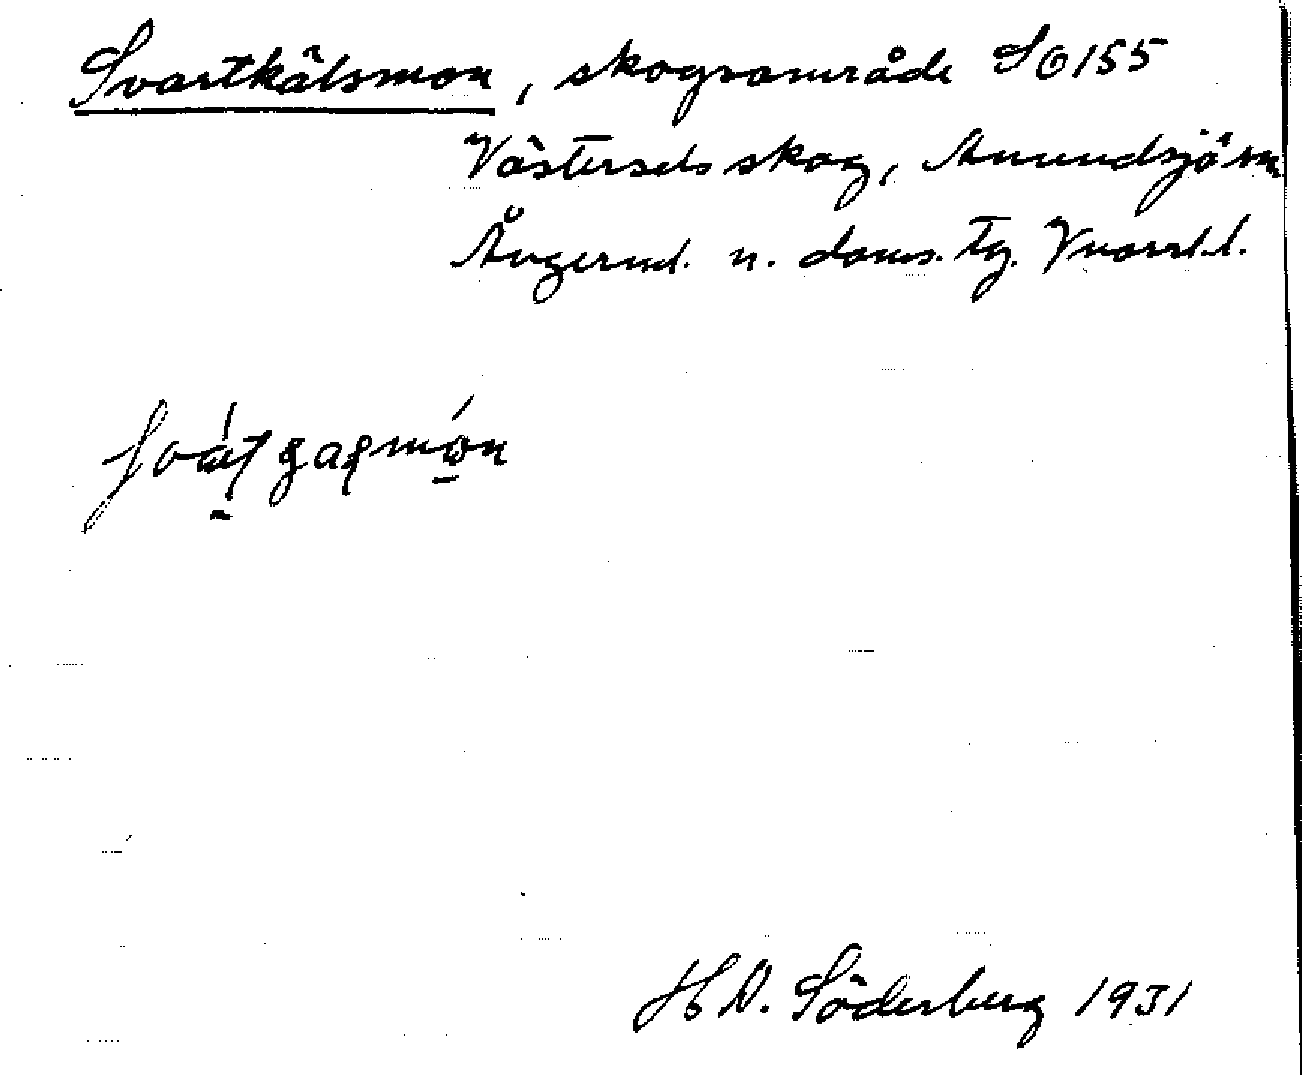 Svartkälsmon, skogsområde SO 155
Västersels skog, Anundsjö sn
Ångerml. n. doms. tg. Vnorrl. l.
H. D. Söderberg 1931